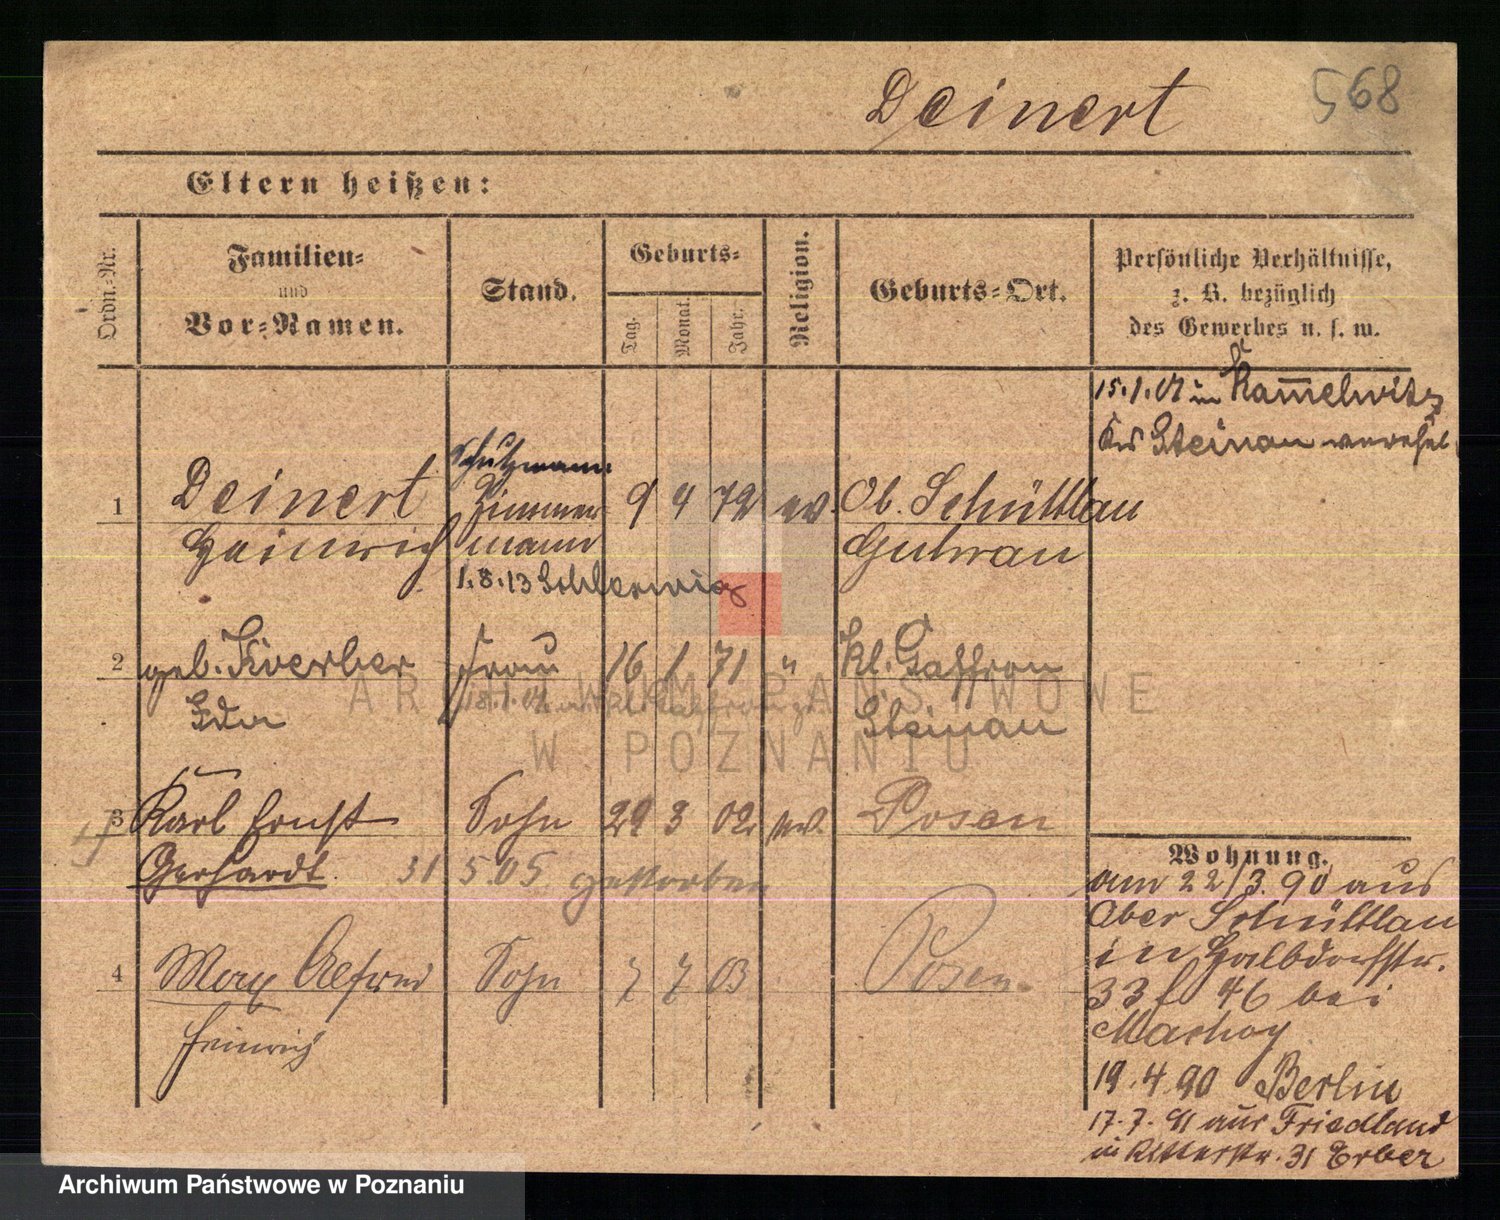 Deinert
568
Eltern heißen:
Ordn.-Nr.
Familien-
und
Vor-Namen.
Stand.
Geburts-
Tag.
Monat.
Jahr.
Religion.
Geburts-Ort.
Persönliche Verhältnisse,
z. B. bezüglich
des Gewerbes u. s. w.
15.1.01 in Kam̅elwitz
Krs Steinau verehel.
Schutzmann
1 Deinert Zimmer- 9 4 72 ev. Ob. Schüttlau
Heinrich mann Guhrau
1.8.13 Schleswig
2 geb. Frau 16 1 71 " Kl. Gaffron
Ida Steinau
3 Karl Ernst Sohn 29 3 02 ev. Posen
Gerhardt. 31 5.05 gestorben
4 Max Alfred Sohn 7 7 03 Posen.
Heinrich
Wohnung.
am 22/3.90 aus
Ober Schüttlau
in Halbdorfstr.
33 f 46 bei
19.4.90 Berlin
17.7.91 aus Friedland
in Ritterstr. 31 Erber
ARCHIWUM PAŃSTWOWE
W POZNANIU
Archiwum Państwowe w Poznaniu